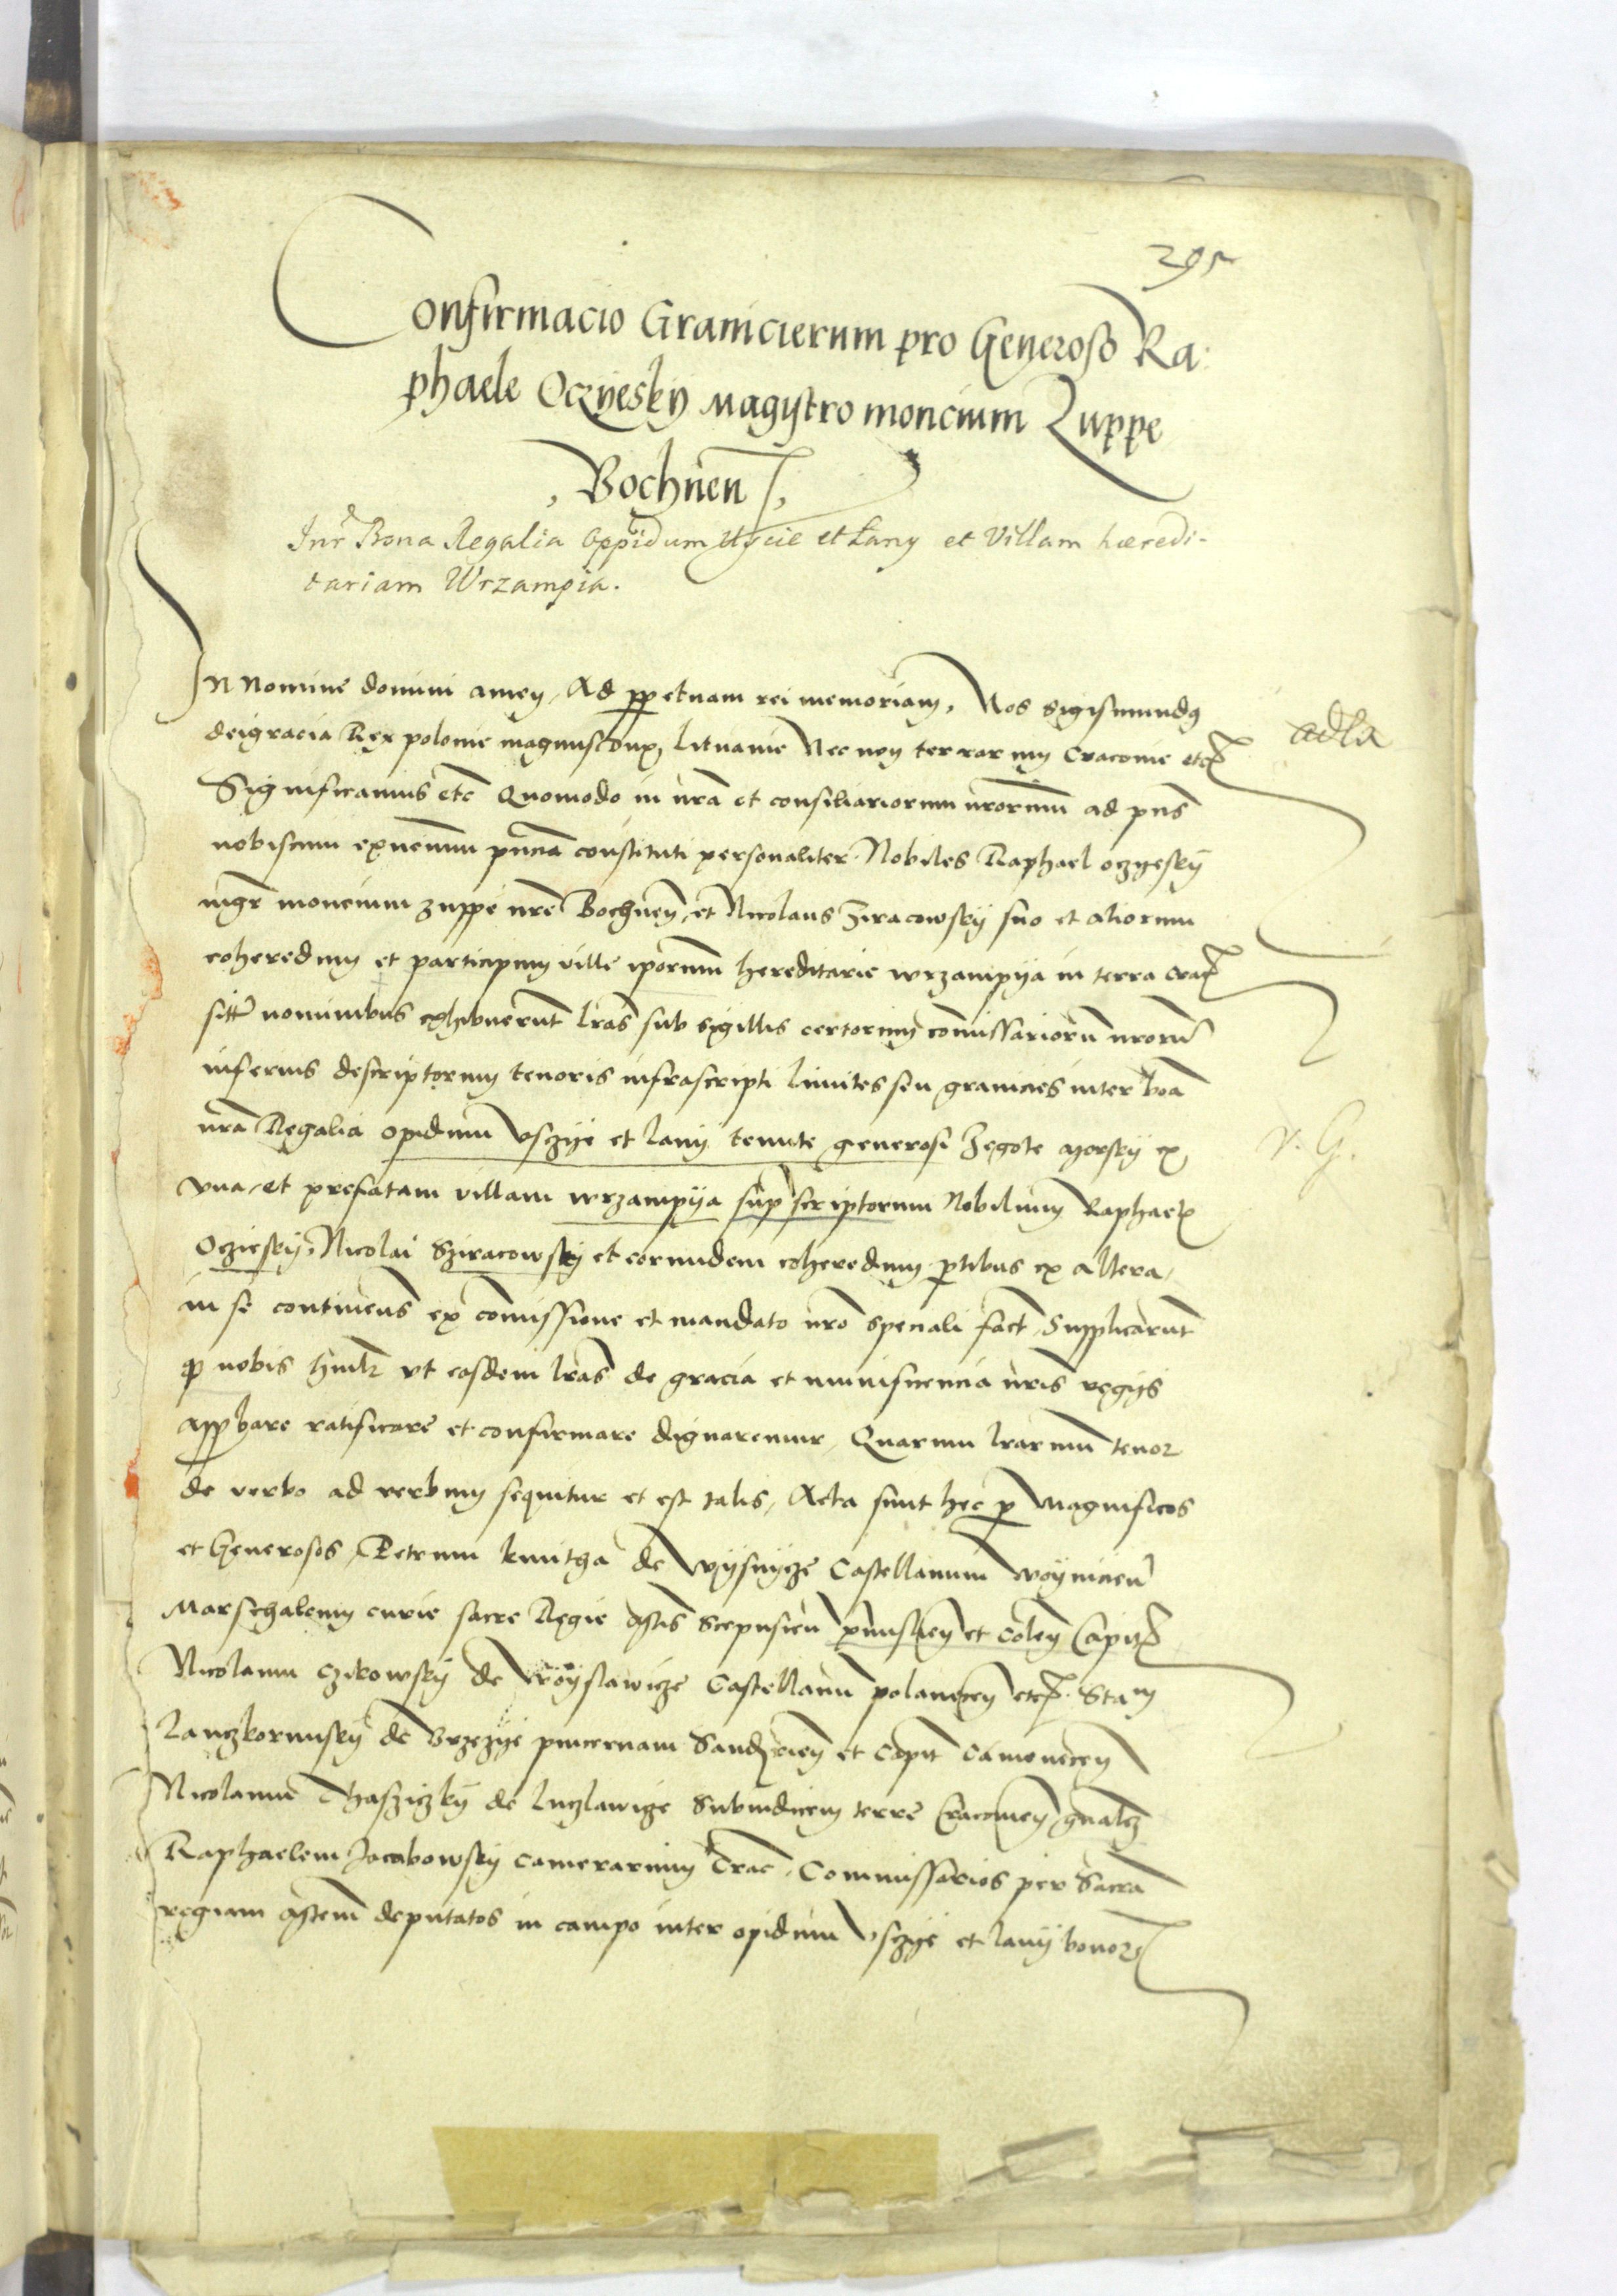 295
Confirmacio Granicierum pro Generoso Ra:
phaele Oczÿeskÿ Magÿstro moncium Zuppe
Bochnen
Intr Bona Regalia Oppidum Uscie et Łany et Villam hæredi-
tariam Wrzampia.
In nomine domini amen, Ad ppetuam rei memoriam, Nos Sigismundq
dei gracia Rex polonie magnus dux, Lituanie Nec non terrarum Cracouie etc
Significamus etc Quomodo in nrã et consiliariorum nrorum ad pns
nobiscum exñcium pñcia constituti personaliter Nobiles Raphael oczyeskÿ
mgr moncium zuppe nre Bochnen, et Nicolaus Ziracowskÿ suo et aliorum
coheredum et participum ville ipõrum hereditarie wrzampÿa in terra Crac
sitt nominibus exhibuerunt lras sub sigillis certorum comissariorũ nrorũ
inferius descriptorum tenoris infrascripti limites seu granicies inter boã
nrã Regalia opidum Vszÿe et lanÿ tenute generosi Zegote morskÿ ex
vna, et prefatam villam wrzampÿa sup scriptorum Nobilium Raphaelis
Oczieskÿ, Nicolai Sziracowskÿ et eorundem coheredum ptibus ex altera,
in se continens ex comissione et mandato nro speciali fact, Supplicarunt
qz nobis humilr vt easdem lras de gracia et munificencia nris regÿs
approbare ratificare et confirmare dignaremur, Quarum lrarum tenor
de verbo ad verbum sequitur et est talis, Acta sunt hec p Magnificos
et Generosos, Petrum kmitha de Vÿsnÿcze Castellanum woÿnicien
Marschalcum curie sacre Regie Mtis Scepusien prmislien et colen Capit
Nicolaum czikowskÿ de Woÿslawicze Castellanũ polanecen etc. Stam
Lanczkorunskÿ de Brzezÿe pincernam Sandomirien et Capit Camenecen
Nicolaum Thasziczkÿ de luczlawicze Subiudicem terre Cracouien gnalem
Raphaelem Jacubowskÿ camerarium Crac. Commissarios per Sacrã
regiam Mtem deputatos in campo inter opidum Vszÿe et lanÿ bonor
adla
v. G.